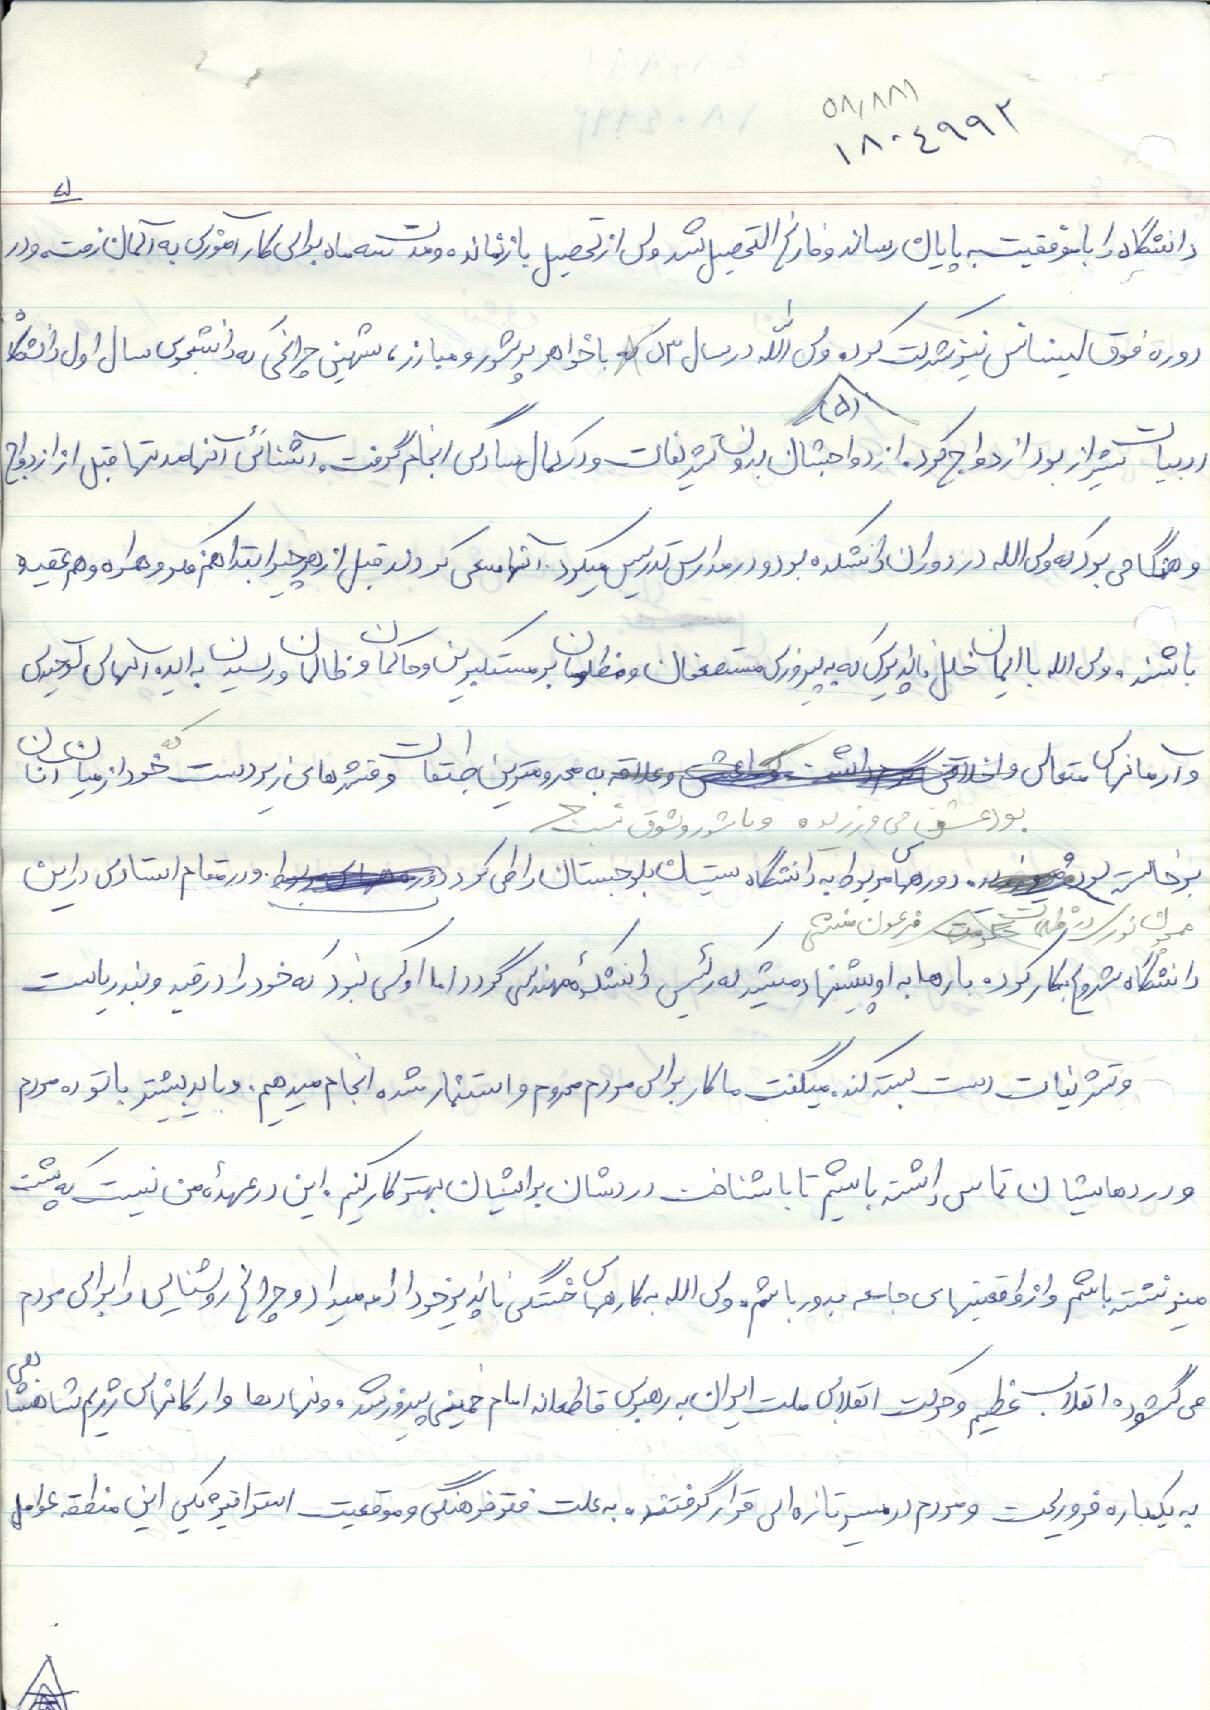 ۵۸٫۸۸۹
۱۸۰۴۹۹۲
دانشگاه را با موفقیت به پایان رساند و فارغ التحصیل شد ولی از تحصیل باز نمانده و مدت سه ماه برای کار آموزی به آلمان رفت. و در
دوره فوق لیسانس نیز شرکت کرد. ولی الله در سال ۵۳ که با خواهر پرشور و مبارز، شهین چراغی که دانشجوی سال اول دانشگاه
(۵)
ادبیات شیراز بود ازدواج کرد. ازدواجشان بدون تشریفات و در کمال سادگی انجام گرفت. آشنائی آنها مدتها قبل از ازدواج
و هنگامی بود که ولی الله در دوران دانشکده بود و در مدارس تدریس میکرد. آنها سعی کردند قبل از هر چیز ابتدا هم فکر و همراه و هم عقیده
باشند. ولی الله با ایمان خلل ناپذیری که به پیروزی مستضعفان و مظلومان بر مستکبرین و حاکمان و ظالمان و رسیدن به ایده آلهای توحیدی
و آرمانهای متعالی و اخلاقی داشت و علاقه به محرومترین طبقات و قشرهای زیر دست که خود از میان آنان
بود عشق می ورزید و با شور و شوق
برخاسته بود دوره های مربوط به دانشگاه سیستان بلوچستان را طی کرد و در مقام استادی در این
همچون نوری در ظلمات حکومت فرعون منشی
دانشگاه شروع بکار کرد. بارها به او پیشنهاد میشد که رئیس دانشکدهٔ مهندسی گردد اما او کسی نبود که خود را در قید و بند ریاست
و تشریفات دست بسته کند. میگفت ما کار برای مردم محروم و استثمار شده انجام میدهم. و باید بیشتر با توده مردم
و دردهایشان تماس داشته باشیم تا با شناخت دردشان برایشان بهتر کار کنیم. این در عهدهٔ من نیست که پشت
میز نشسته باشم و از واقعیتهای جامعه بدور باشم. ولی الله به کارهای خستگی ناپذیر خود ادامه میداد و چراغ روشنایی را برای مردم
می گشود. انقلاب عظیم و حرکت انقلابی ملت ایران به رهبری قاطعانه امام خمینی پیروز شد. و نهادها و ارکانهای رژیم شاهنشاهی
به یکباره فرو ریخت و مردم در مسیر تازه ای قرار گرفتند. به علت فقر فرهنگی و موقعیت استراتژیکی این منطقه عوامل